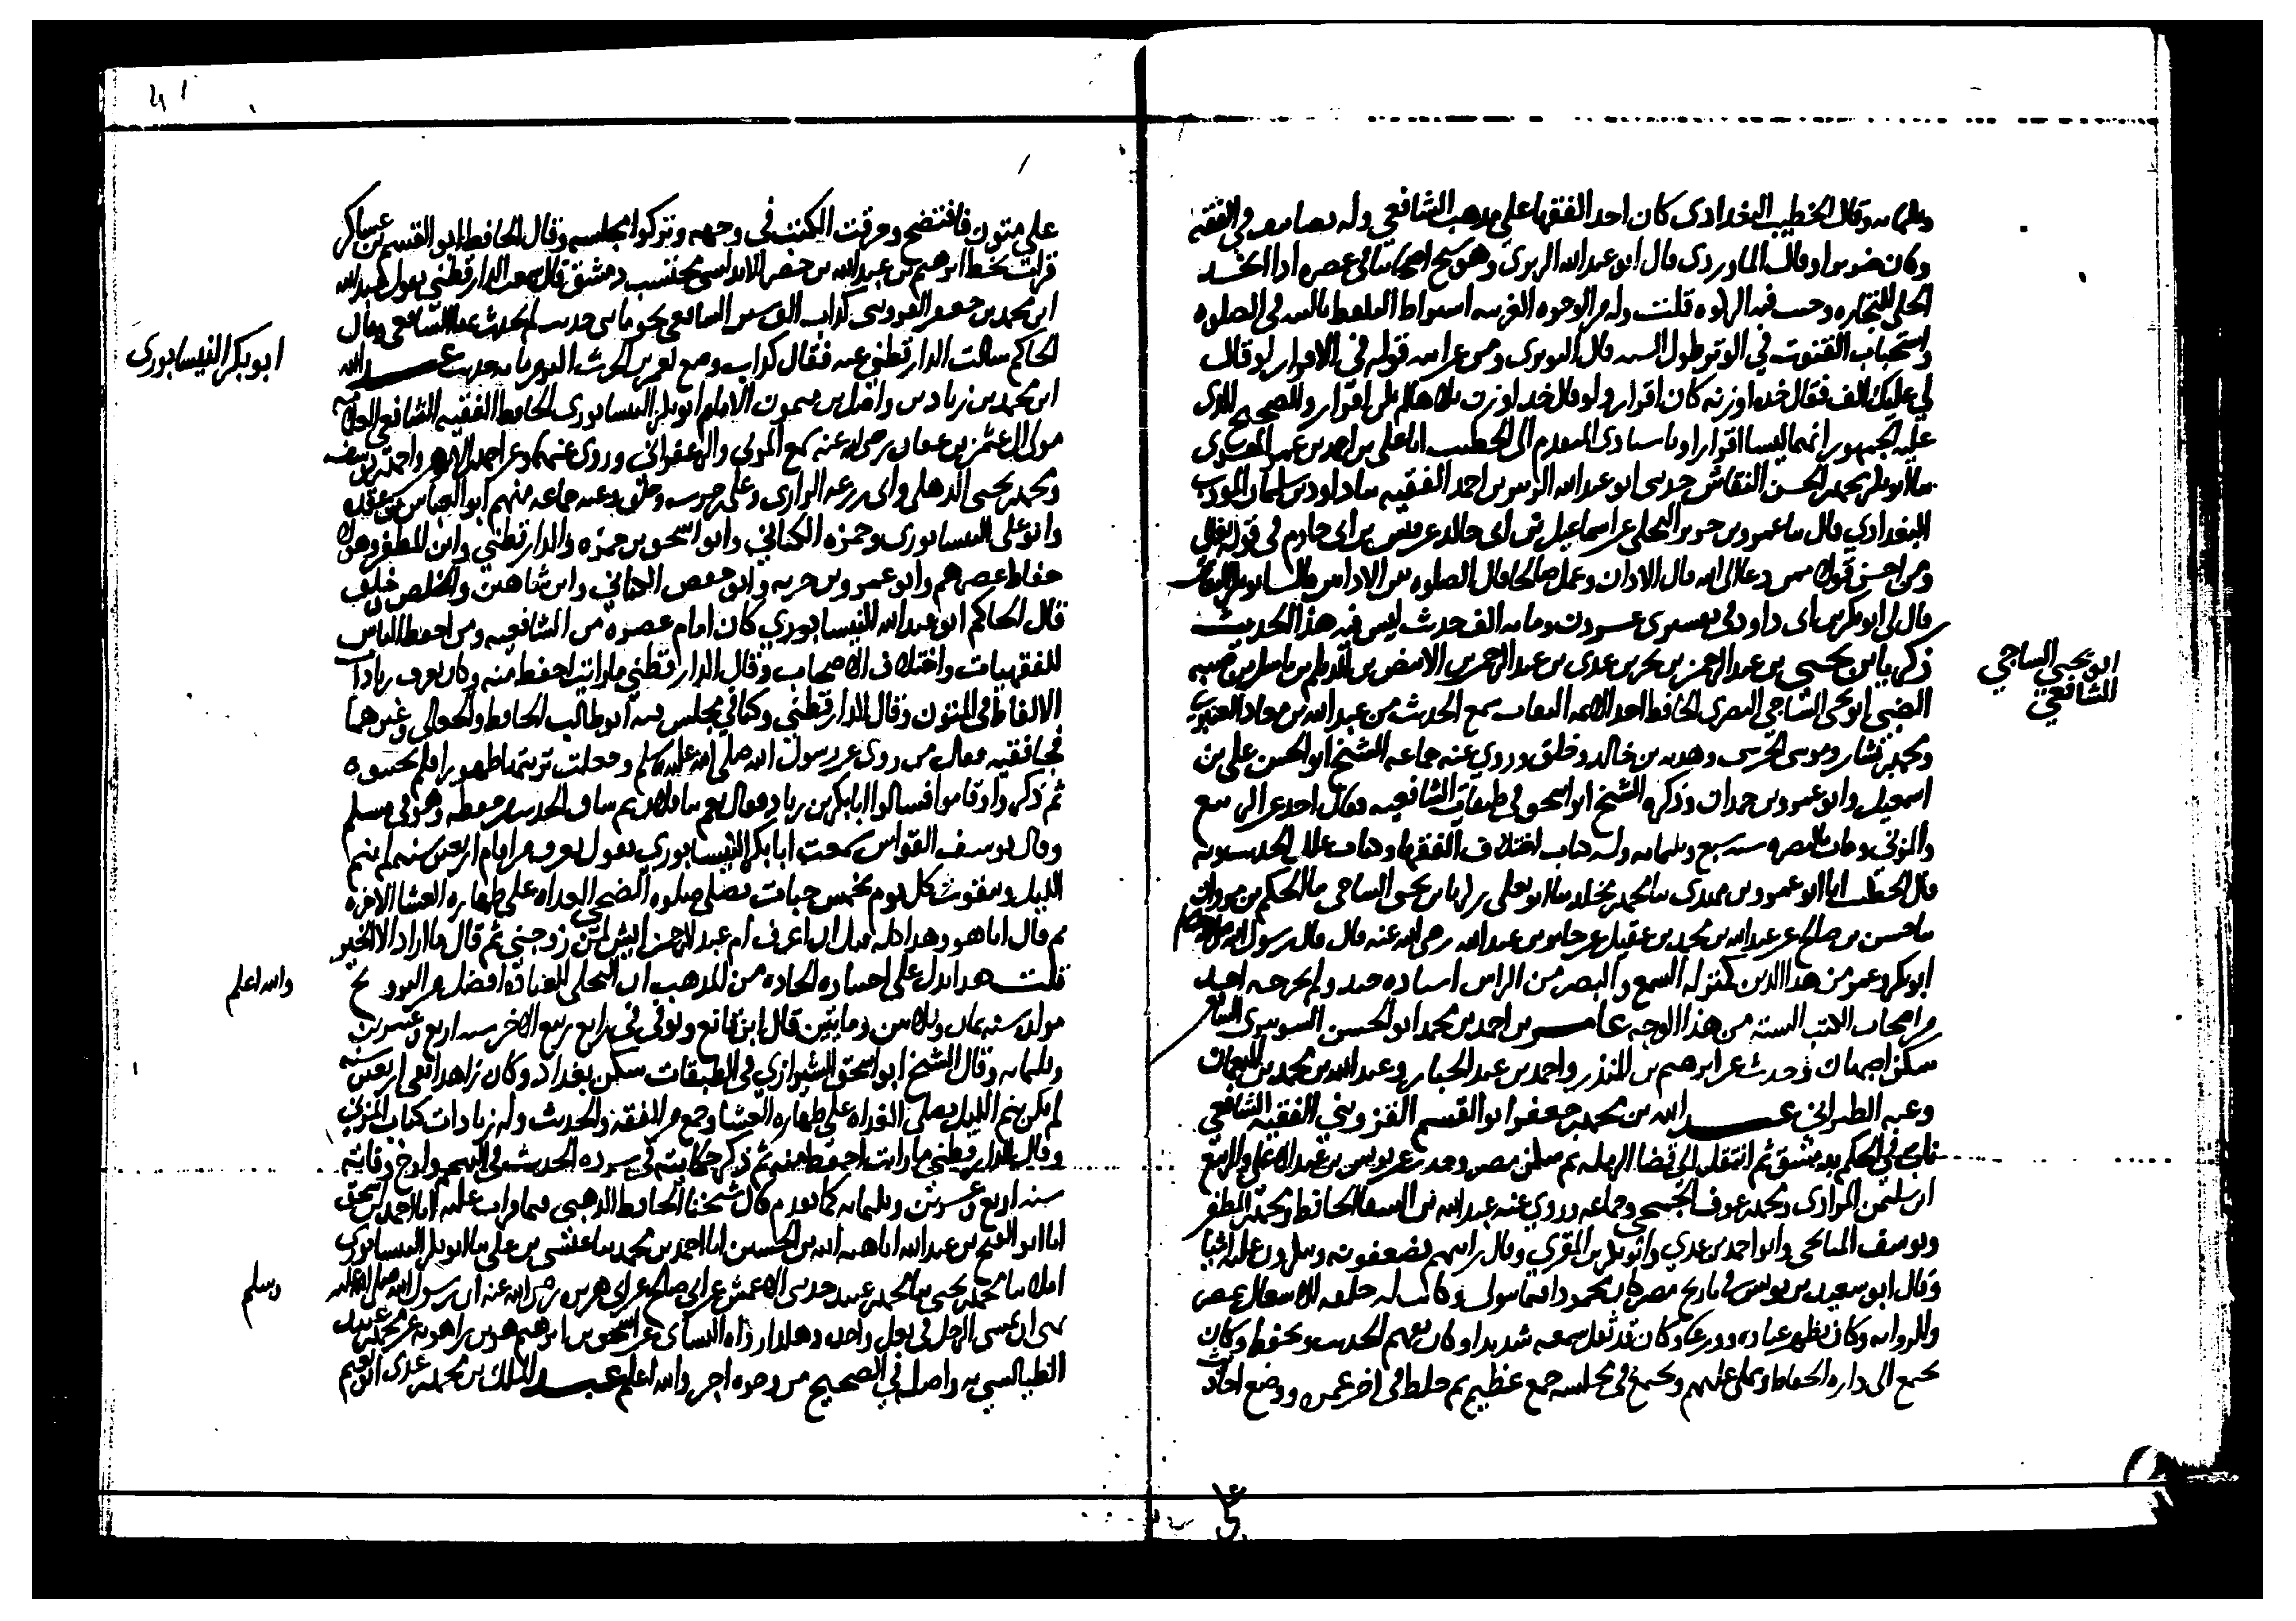 وقال الخطيب البغدادى كان احد الفقها على مذهب الشافعي وله مصنفات في الفقه
وكان ضريرا وقال الماوردى قال ابو عبد الله الزبيرى وهو شيخ اصحابنا في عصره اذا اتخذ
الحلي للتجاره وجبت فيه الزكوه قلت وله من الوجوه الغريبه اشتراط التلفظ بالنيه في الصلوه
واستحباب القنوت في الوتر طول السنه قال النووى ومن غرايبه قوله في الاقرار لو قال
لي عليك الف فقال خذه او زنه كان اقرارا ولو قال خذ او زن بلا ها لم يكن اقرارا والصحيح الذى
عليه الجمهور انهما ليسا اقرارا وباسنادى المتقدم الى الخطيب انا على بن احمد بن عمر المقرى
نا ابو بكر محمد بن الحسن النقاش حدثنى ابو عبد الله الزبير بن احمد الفقيه نا داود بن سليمان المودب
البغدادي قال نا عمرو بن جرير البجلي عن اسماعيل بن ابى خالد عن قيس بن ابى حازم فى قوله تعالى
ومن احسن قولا ممن دعا الى الله قال الاذان وعمل صالحا قال الصلوه بين الاذانين قال ابو بكر النقاش
قال لي ابو بكر بن ابى داود في تفسيرى عشرون ومايه الف حديث ليس فيه هذا الحديث
زكريا بن يحيى بن عبد الرحمن بن بحر بن عدى بن عبد الرحمن بن الابيض بن الديلم بن باسل بن ضبه
ابو يحيى الساجي
الشافعي
الضبي ابو يحيى الساجي البصرى الحافظ احد الايمه الثقات سمع الحديث من عبيد الله بن معاذ العنبرى
ومحمد بن بشار وموسى الحرشى وهدبه بن خالد وخلق وروى عنه جماعه الشيخ ابو الحسن على بن
اسمعيل وابو عمرو بن حمدان وذكره الشيخ ابو اسحق في طبقات الشافعيه وقال اخذ عن الربيع
والمزني ومات بالبصره سنه سبع وثلثمايه وله كتاب اختلاف الفقها وكتاب علل الحديث وبه
قال الخطيب انا ابو عمرو بن مهدى نا محمد بن مخلد نا ابو يعلى زكريا بن يحيى الساجى نا الحكم بن مروان
نا حسن بن صالح عن عبد الله بن محمد بن عقيل عن جابر بن عبد الله رضى الله عنه قال قال رسول الله صلى الله عليه وسلم
ابو بكر وعمر من هذا الدين كمنزله السمع والبصر من الراس اسناده جيد ولم يخرجه احد
من اصحاب الكتب السته من هذا الوجه عامر بن احمد بن محمد ابو الحسن الشافعي
سكن اصبهان وحدث عن ابرهيم بن المنذر واحمد بن عبد الجبار وعبد الله بن محمد بن النعمان
وعنه الطبراني عبد الله بن محمد بن جعفر ابو القسم القزويني الفقيه الشافعي
ناب في الحكم بدمشق ثم انتقل الى قضا الرمله ثم سكن مصر وحدث عن يونس بن عبد الاعلى والربيع
ابن سليمن المرادى ومحمد بن عوف الحمصي وجماعه وروى عنه عبد الله بن السقا الحافظ ومحمد بن المظفر
ويوسف الميانجى وابو احمد بن عدي وابو بكر بن المقري وقال رايتهم يضعفونه وينكرون عليه اشيا
وقال ابو سعيد بن يونس في تاريخ مصر كان محمودا فيما يتولى وكانت له حلقه للاشغال بمصر
وللروايه وكان يظهر عباده وورعا وكان قد ثقل سمعه شديدا وكان يفهم الحديث ويحفظ وكان
يجتمع الى داره الحفاظ ويملي عليهم ويجتمع في مجلسه جمع عظيم ثم خلط في اخر عمره ووضع احاديث
على متون فافتضح وحرقت الكتب في وجهه وتركوا مجلسه وقال الحافظ ابو القسم بن عساكر
قرات بخط ابرهيم بن عبد الله بن حصن الاندلسى محتسب دمشق قال سمعت الدارقطني يقول عبد الله
ابن محمد بن جعفر القزوينى كذاب الف سنن الشافعي نحو مايتى حديث لم يحدث بها الشافعي وقال
الحاكم سالت الدارقطني عنه فقال كذاب وضع لعمرو بن الحرث اكثر من مايه حديث عبد الله
ابو بكر النيسابورى
ابن محمد بن زياد بن واصل بن ميمون الامام ابو بكر النيسابورى الحافظ الفقيه الشافعي العلامه
مولى ال عثمن بن عفان رضى الله عنه سمع المزني والزعفراني وروى عنهما وعن احمد بن الازهر واحمد بن يوسف
ومحمد بن يحيى الذهلي وابى زرعه الرازى وعلى بن حرب وخلق وعنه جماعه منهم ابو العباس بن عقده
وابو على النيسابورى وحمزه الكناني وابو اسحق بن حمزه والدارقطني وابن المظفر وهولا
حفاظ عصرهم وابو عمرو بن حيويه وابو حفص الكتاني وابن شاهين والمخلص وخلف
قال الحاكم ابو عبد الله النيسابوري كان امام عصره من الشافعيه ومن احفظ الناس
للفقهيات واختلاف الاصحاب وقال الدارقطني ما رايت احفظ منه وكان يعرف زيادات
الالفاظ في المتون وقال الدارقطني وكنا في مجلس فيه ابو طالب الحافظ والجعابى وغيرهما
فجا فقيه فقال من روى عن رسول الله صلى الله عليه وسلم وجعلت تربتها طهورا فلم يجيبوه
ثم ذكروا وقاموا فسالوا ابا بكر بن زياد فقال نعم نا فلان ثم ساق الحديث من حفظه وهو في مسلم
وقال يوسف القواس سمعت ابا بكر النيسابوري يقول تعرف من اقام اربعين سنه لم ينم
الليل ويتقوت كل يوم بخمس حبات ويصلي صلوه الغداه على طهاره العشا الاخره
ثم قال انا هو وهذا كله قبل ان اعرف ام عبد الرحمن ايش اقول لمن زوجني ثم قال ما اراد الا الخير
قلت هذا يدل على اختياره الجاده من المذهب ان التخلي للعباده افضل من التزويج
والله اعلم
مولده سنه ثمان وثلاثين ومايتين قال ابن قانع وتوفى في رابع ربيع الاخر سنه اربع وعشرين
وثلثمايه وقال الشيخ ابو اسحق الشيرازي في الطبقات سكن بغداد وكان زاهدا بقي اربعين سنه
لم يكن ينم الليل يصلي الغداه على طهاره العشا وجمع بين الفقه والحديث وله زيادات كتاب المزني
وقال الدارقطني ما رايت احفظ منه ثم ذكر حكايته في سرده الحديث في التيمم وارخ وفاته
سنه اربع وعشرين وثلثمايه كما تقدم قال شيخنا الحافظ الذهبى فيما قرات عليه انا احمد بن اسحق
انا ابو الفتح بن عبد الله انا هبه الله بن الحسين انا احمد بن محمد نا عيسى بن على نا ابو بكر النيسابورى
املا نا محمد بن يحيى نا محمد بن عبيد حدثنى الاعمش عن ابى صالح عن ابى هريره رضى الله عنه ان رسول الله صلى الله عليه
وسلم
نهى ان يمشى الرجل في نعل واحده وهكذا رواه النساى عن اسحق بن ابرهيم هو بن راهويه عن محمد بن عبيد
الطيالسي به واصله في الصحيح من وجوه اخر والله اعلم عبد الملك بن محمد بن عدى ابو نعيم